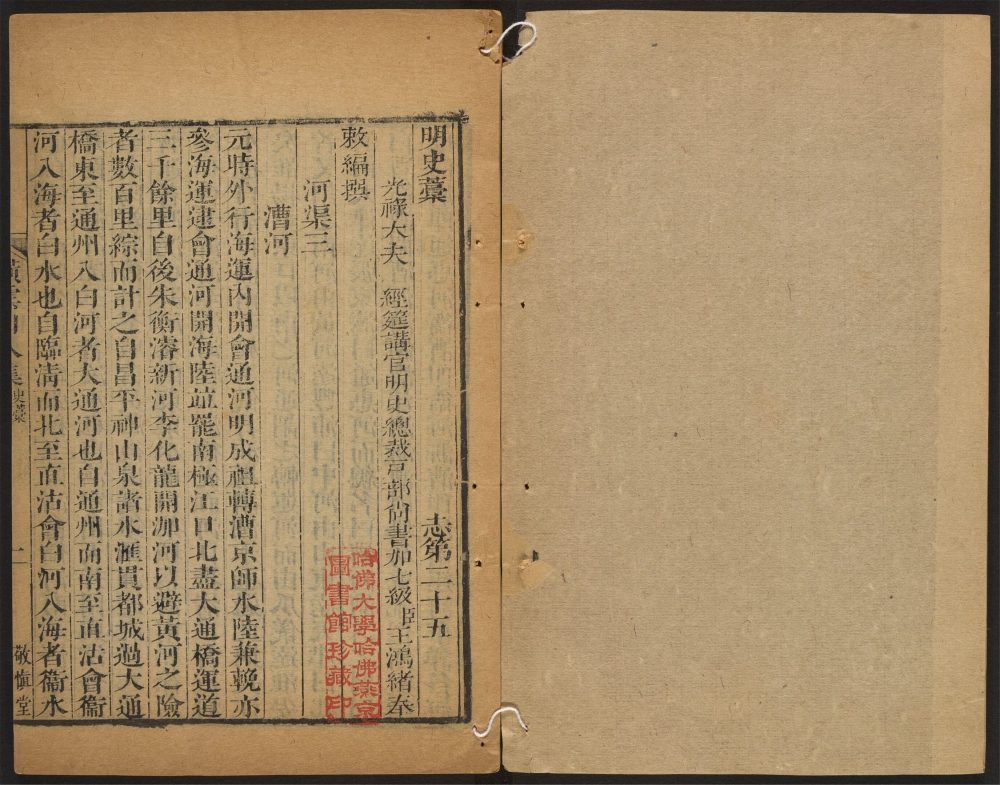 明史藁　志第二十五
光祿大夫　經筵講官明史總裁戶部尙書加七級臣王鴻緒奉
敕編撰
河渠三
漕河
元時外行海運內開會通河明成祖轉漕京師水陸兼輓亦
參海運逮會通河開海陸並罷南極江口北盡大通橋運道
三千餘里自後朱衡濬新河李化龍開泇河以避黃河之險
者數百里綜而計之自昌平神山泉諸水滙貫都城過大通
橋東至通州入白河者大通河也自通州而南至直沽會衞
河入海者白水也自臨淸而北至直沽會白河入海者衞水
史藁
一
敬愼堂
哈佛大學哈佛燕京
圖書館珍藏印